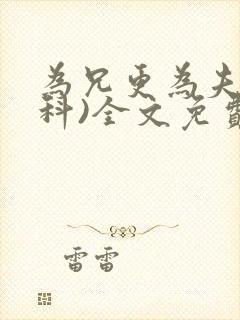 為兄更為夫
科)全文免費
雷雷